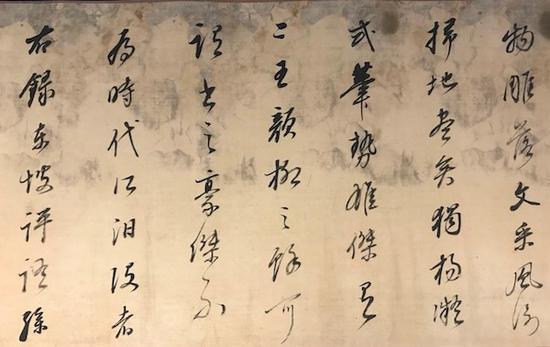 物雕落文采風流
掃地盡矣獨楊凝
式筆勢雄傑有
二王顏柳之餘可
謂書之豪傑不
為時代所汩沒者
右錄東坡評語孫